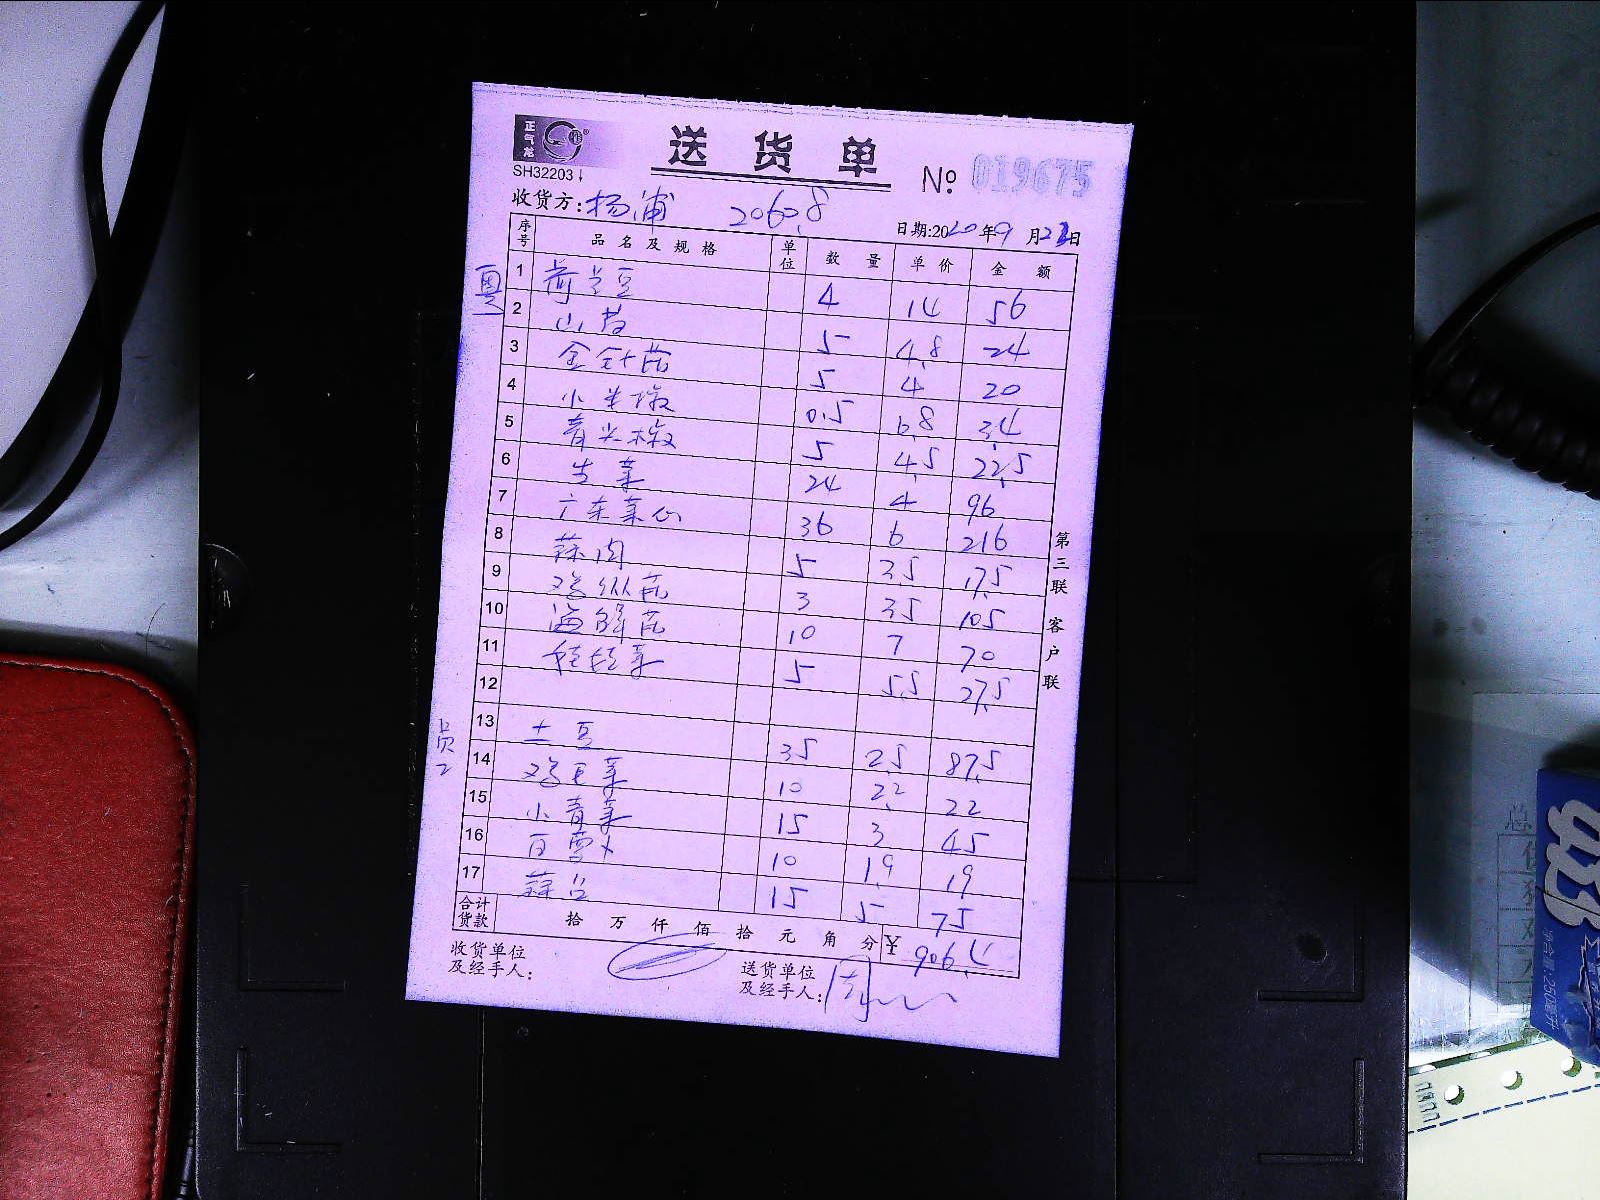 正气龙
送货单
SH32203
№ 019675
收货方: 杨浦 2060.8
日期:2020年9月23日
序号 品名及规格 单位 数量 单价 金额
粤
1 荷兰豆 4 14 56
2 山药 5 4.8 24
3 金针菇 5 4 20
4 小米椒 0.5 6.8 3.4
5 青尖椒 5 4.5 22.5
6 生菜 24 4 96
7 广东菜心 36 6 216
8 蒜肉 5 3.5 17.5
9 鸡纵菇 3 35 105
10 海鲜菇 10 7 70
11 娃娃菜 5 5.5 27.5
12
员工
13 土豆 35 2.5 87.5
14 鸡毛菜 10 2.2 22
15 小青菜 15 3 45
16 白萝卜 10 1.9 19
17 蒜苔 15 5 75
合计货款 拾 万 仟 佰 拾 元 角 分 ¥ 906.4
收货单位及经手人:
送货单位及经手人:
第三联 客户联
净含量:250毫升